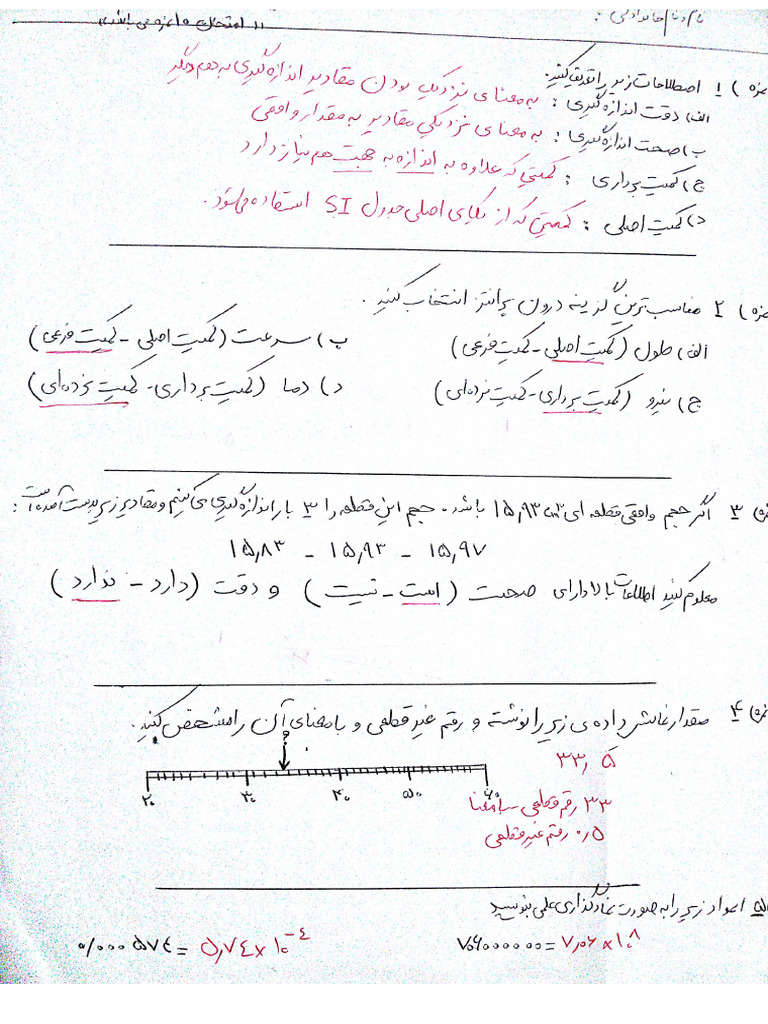 نام و نام خانوادگی :
۱) اصطلاحات زیر را تعریف کنید.
الف) دقت اندازه گیری : به معنای نزدیک بودن مقادیر اندازه گیری به هم دیگر
ب) صحت اندازه گیری : به معنای نزدیکی مقادیر به مقدار واقعی
ج) کمیت برداری : کمیتی که علاوه به اندازه به جهت هم نیاز دارد
د) کمیت اصلی : کمیتی که از یکای اصلی جدول SI استفاده می‌شود.
۲ مناسب ترین گزینه درون پرانتز انتخاب کنید.
الف) طول (کمیت اصلی - کمیت فرعی) ب) سرعت (کمیت اصلی - کمیت فرعی)
ج) نیرو (کمیت برداری - کمیت نرده‌ای) د) دما (کمیت برداری - کمیت نرده‌ای)
۳ اگر حجم واقعی قطعه ای ۱۵٫۹۳ باشد. حجم این قطعه را ۳ بار اندازه گیری می کنیم و مقادیر زیر بدست آمده است :
۱۵٫۸۳ - ۱۵٫۹۳ - ۱۵٫۹۷
معلوم کنید اطلاعات بالا دارای صحت (است - نیست) و دقت (دارد - ندارد)
۴ مقدار نمایش داده ی زیر را نوشته و رقم غیر قطعی و با معنای آن را مشخص کنید.
۳۳٫۵
۲۰ ۳۰ ۴۰ ۵۰ ۶۰
۳۳ رقم قطعی با معنا
۰٫۵ رقم غیر قطعی
۵ اعداد زیر را به صورت نمادگذاری علمی بنویسید
۷۰۶۰۰۰۰۰۰ = ۷٫۰۶ × ۱۰^۸ ۰٫۰۰۰۵۷۴ = ۵٫۷۴ × ۱۰^-۴